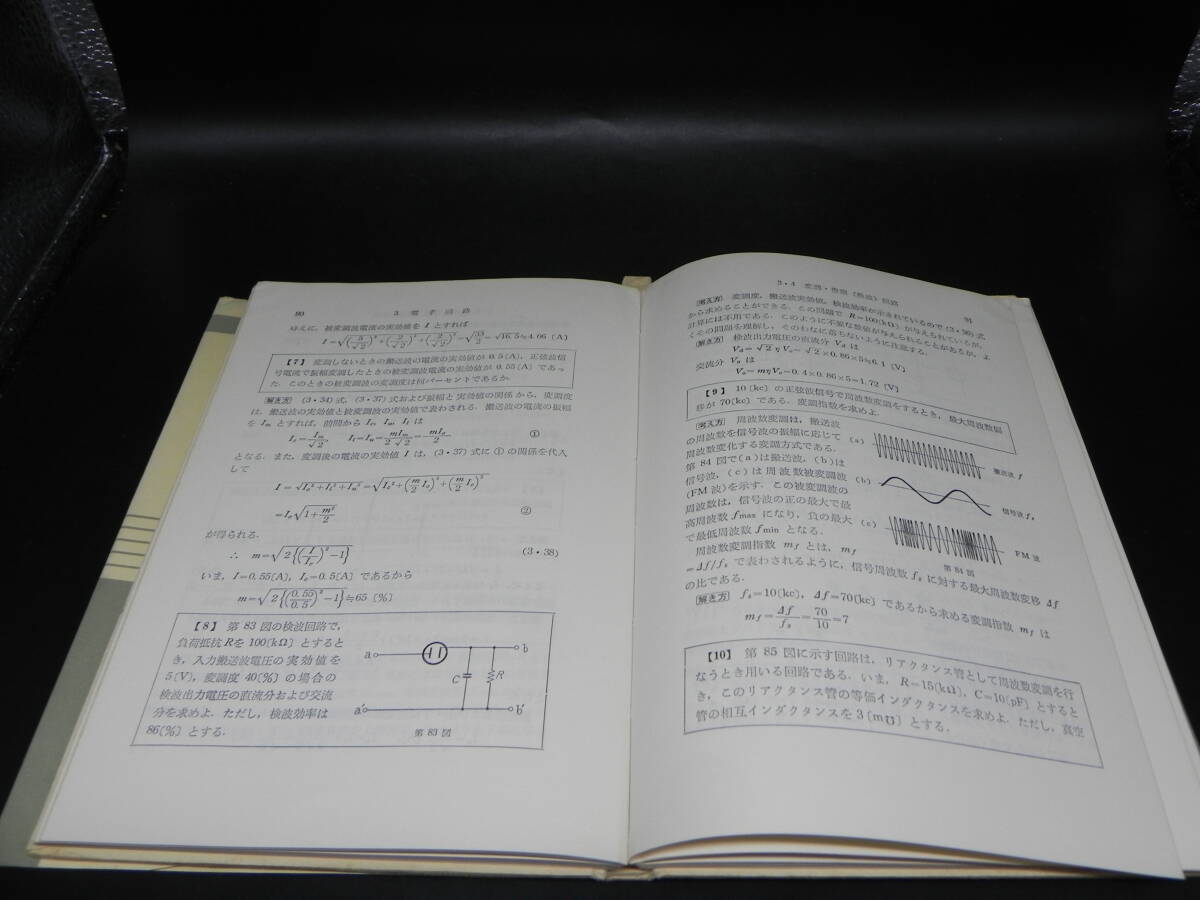 90 3. 電子回路
ゆえに，被変調波電流の実効値を I とすれば
I=√(5/√2)²+(2/2)²+(2/2)²=√33/2=√16.5≒4.06〔A〕
【7】 変調しないときの搬送波の電流の実効値が 0.5〔A〕，正弦波信
号電流で振幅変調したときの被変調波電流の実効値が 0.55〔A〕であっ
た．このときの被変調波の変調度は何パーセントであるか．
解き方 (3・34) 式，(3・37) 式および振幅と実効値の関係から，変調度
は，搬送波の実効値と被変調波の実効値で表わされる．搬送波の電流の振幅
を Im とすれば，
となる．また，変調後の電流の実効値 I は，(3・37) 式に ① の関係を代入
して
I=√Ic²+Il²+Iu²=√Ic²+(m/2 Ic)²+(m/2 Ic)²
=Ic√1+m²/2 ②
が得られる．
∴ m=√2{(I/Ic)²−1} (3・38)
いま，I=0.55〔A〕，Ic=0.5〔A〕であるから
m=√2{(0.55/0.5)²−1}≒65〔%〕
【8】 第 83 図の検波回路で，
負荷抵抗 R を 100〔kΩ〕とすると
き，入力搬送波電圧の実効値を
5〔V〕，変調度 40〔%〕の場合の
検波出力電圧の直流分および交流
分を求めよ．ただし，検波効率は
86〔%〕とする．
a b
C R
a′ b′
第 83 図
3・4 変調・復調（検波）回路 91
考え方 変調度，搬送波実効値，検波効率が示されているので (3・36) 式
から求めることができる．この問題で R=100〔kΩ〕が与えられているが，
計算には不用である．このように不要な数値が与えられることがあるが，よ
くその問題を理解し，そのわなに落ちないように注意する．
解き方 検波出力電圧の直流分 Vd は
Vd=√2ηVc=√2×0.86×5≒6.1〔V〕
交流分 Va は
Va=mηVc=0.4×0.86×5=1.72〔V〕
【9】 10〔kc〕の正弦波信号で周波数変調をするとき，最大周波数偏
移が 70〔kc〕である．変調指数を求めよ．
考え方 周波数変調は，搬送波
の周波数を信号波の振幅に応じて
周波数変化する変調方式である．
第 84 図で(a)は搬送波，(b)は
信号波，(c)は周波数被変調波
(FM 波)を示す．この被変調波の
周波数は，信号波の正の最大で最
高周波数 fmax になり，負の最大
で最低周波数 fmin となる．
(a) 搬送波 f
(b) 信号波 fs
(c) FM 波
第 84 図
周波数変調指数 mf とは，mf
=Δf/fs で表わされるように，信号周波数 fs に対する最大周波数変移 Δf
の比である．
解き方 fs=10〔kc〕，Δf=70〔kc〕であるから求める変調指数 mf は
mf=Δf/fs=70/10=7
【10】 第 85 図に示す回路は，リアクタンス管として周波数変調を行
なうとき用いる回路である．いま，R=15〔kΩ〕，C=10〔pF〕とすると
き，このリアクタンス管の等価インダクタンスを求めよ．ただし，真空
管の相互インダクタンスを 3〔m℧〕とする．